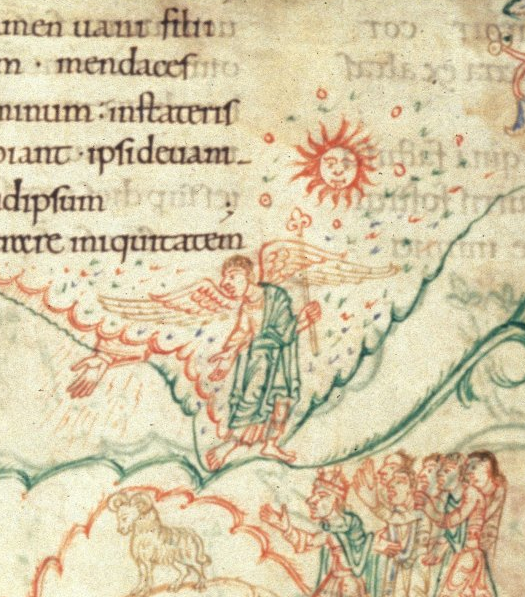 men uani filii
m · mendaces
minum : instateris
piant · ipsideuani
idipsum
iniquitatem